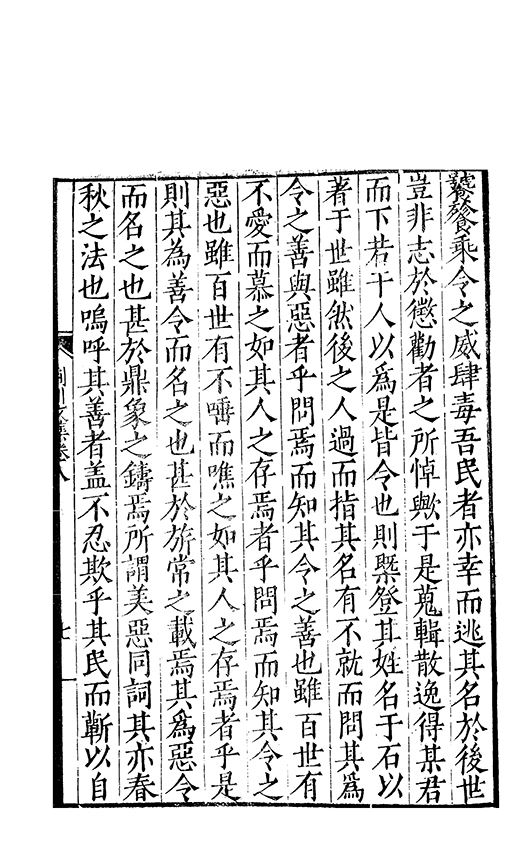 饕餮乘令之威肆毒吾民者亦幸而逃其名於後世
豈非志於懲勸者之所悼歟于是蒐輯散逸得某君
而下若干人以爲是皆令也則槩登其姓名于石以
著于世雖然後之人過而指其名有不就而問其爲
令之善與惡者乎問焉而知其令之善也雖百世有
不愛而慕之如其人之存焉者乎問焉而知其令之
惡也雖百世有不唾而噍之如其人之存焉者乎是
則其為善令而名之也甚於旂常之載焉其爲惡令
而名之也甚於鼎象之鑄焉所謂美惡同詞其亦春
秋之法也嗚呼其善者盖不忍欺乎其民而蘄以自
川文集卷八
七